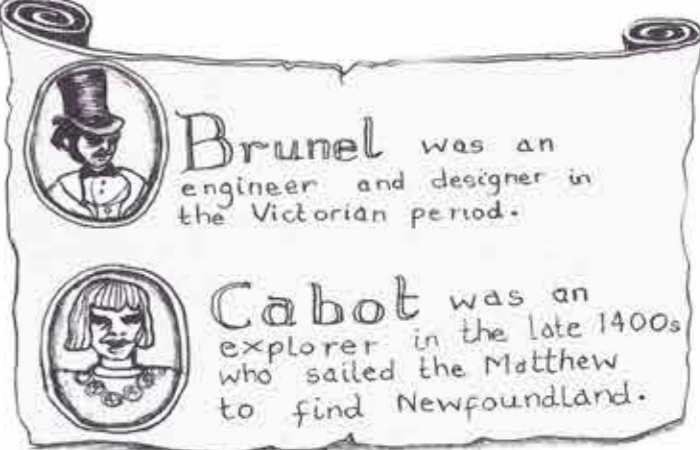 Brunel was an
engineer and designer in
the Victorian period.
Cabot was an
explorer in the late 1400s
who sailed the Matthew
to find Newfoundland.